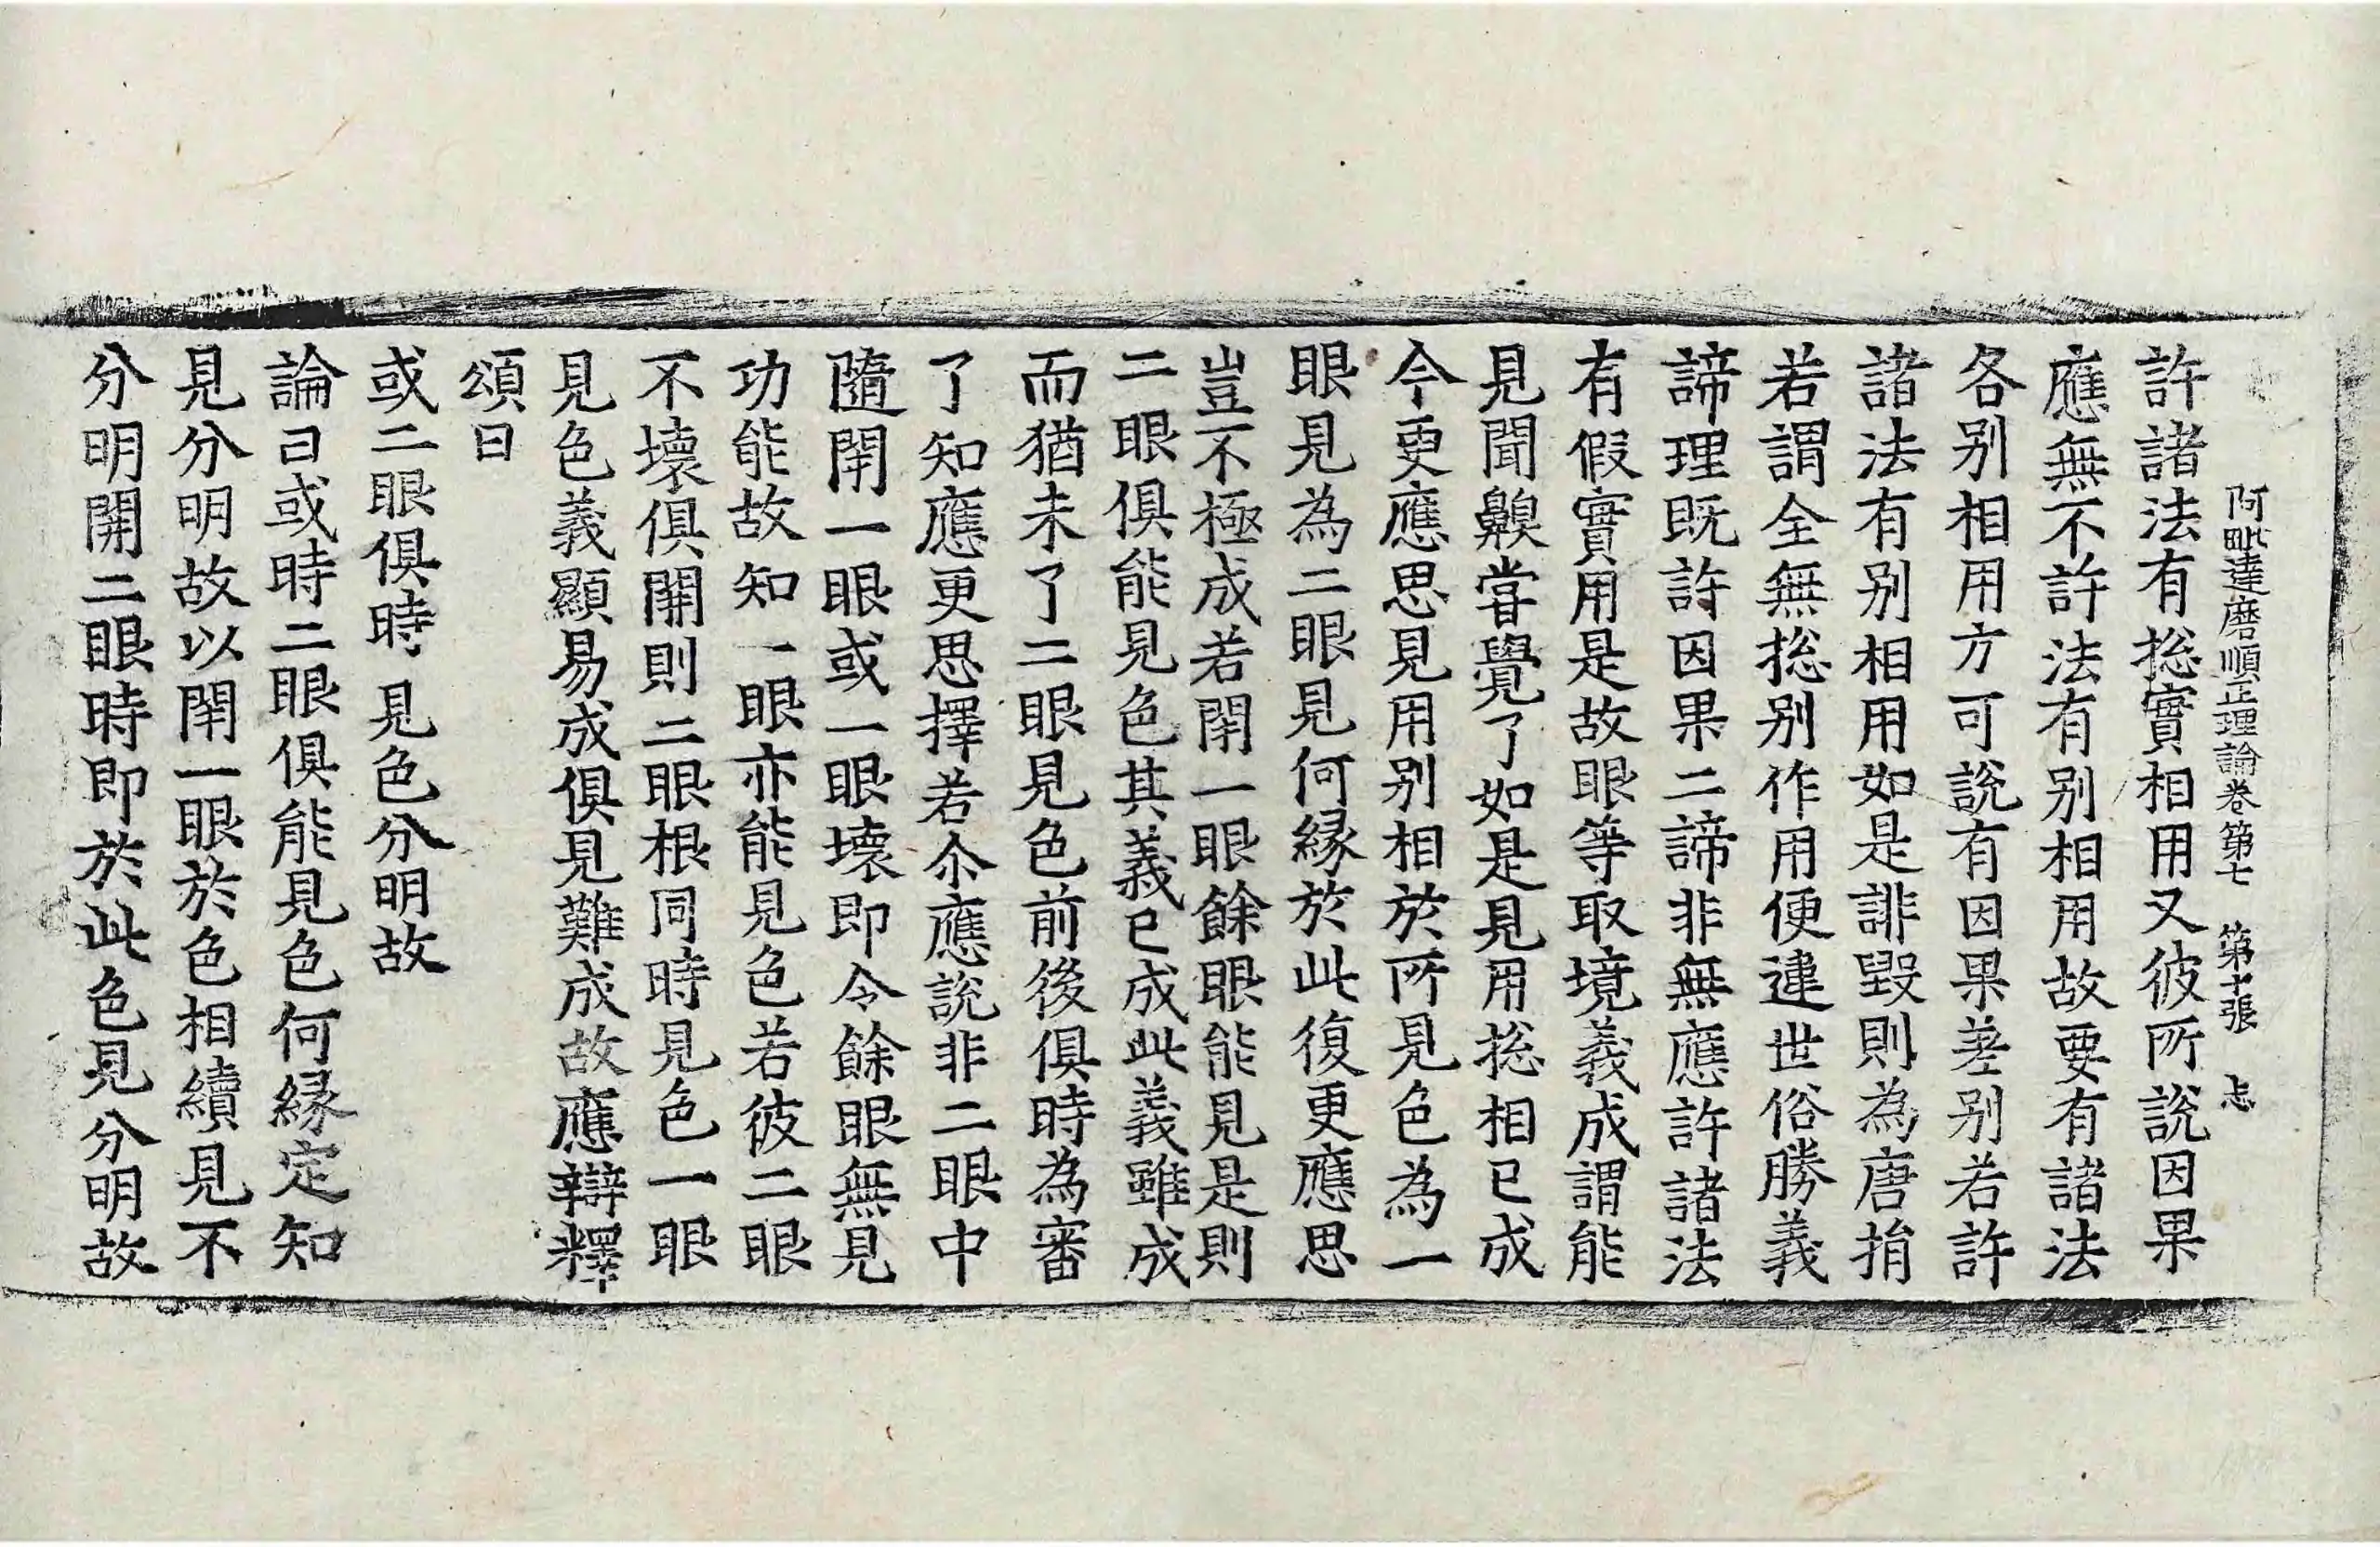 阿毗達磨順正理論卷第七 第十張 忐
許諸法有捴實相用又彼所說因果
應無不許法有别相用故要有諸法
各别相用方可說有因果差别若許
諸法有别相用如是誹毀則為唐捐
若謂全無捴别作用便違世俗勝義
諦理既許因果二諦非無應許諸法
有假實用是故眼等取境義成謂能
見聞齅甞覺了如是見用捴相已成
今更應思見用别相於所見色為一
眼見為二眼見何緣於此復更應思
豈不極成若閇一眼餘眼能見是則
二眼俱能見色其義已成此義雖成
而猶未了二眼見色前後俱時為審
了知應更思擇若尒應說非二眼中
隨閇一眼或一眼壞即令餘眼無見
功能故知一眼亦能見色若彼二眼
不壞俱開則二眼根同時見色一眼
見色義顯易成俱見難成故應辯釋
頌曰
或二眼俱時 見色分明故
論曰或時二眼俱能見色何緣定知
見分明故以閇一眼於色相續見不
分明開二眼時即於此色見分明故